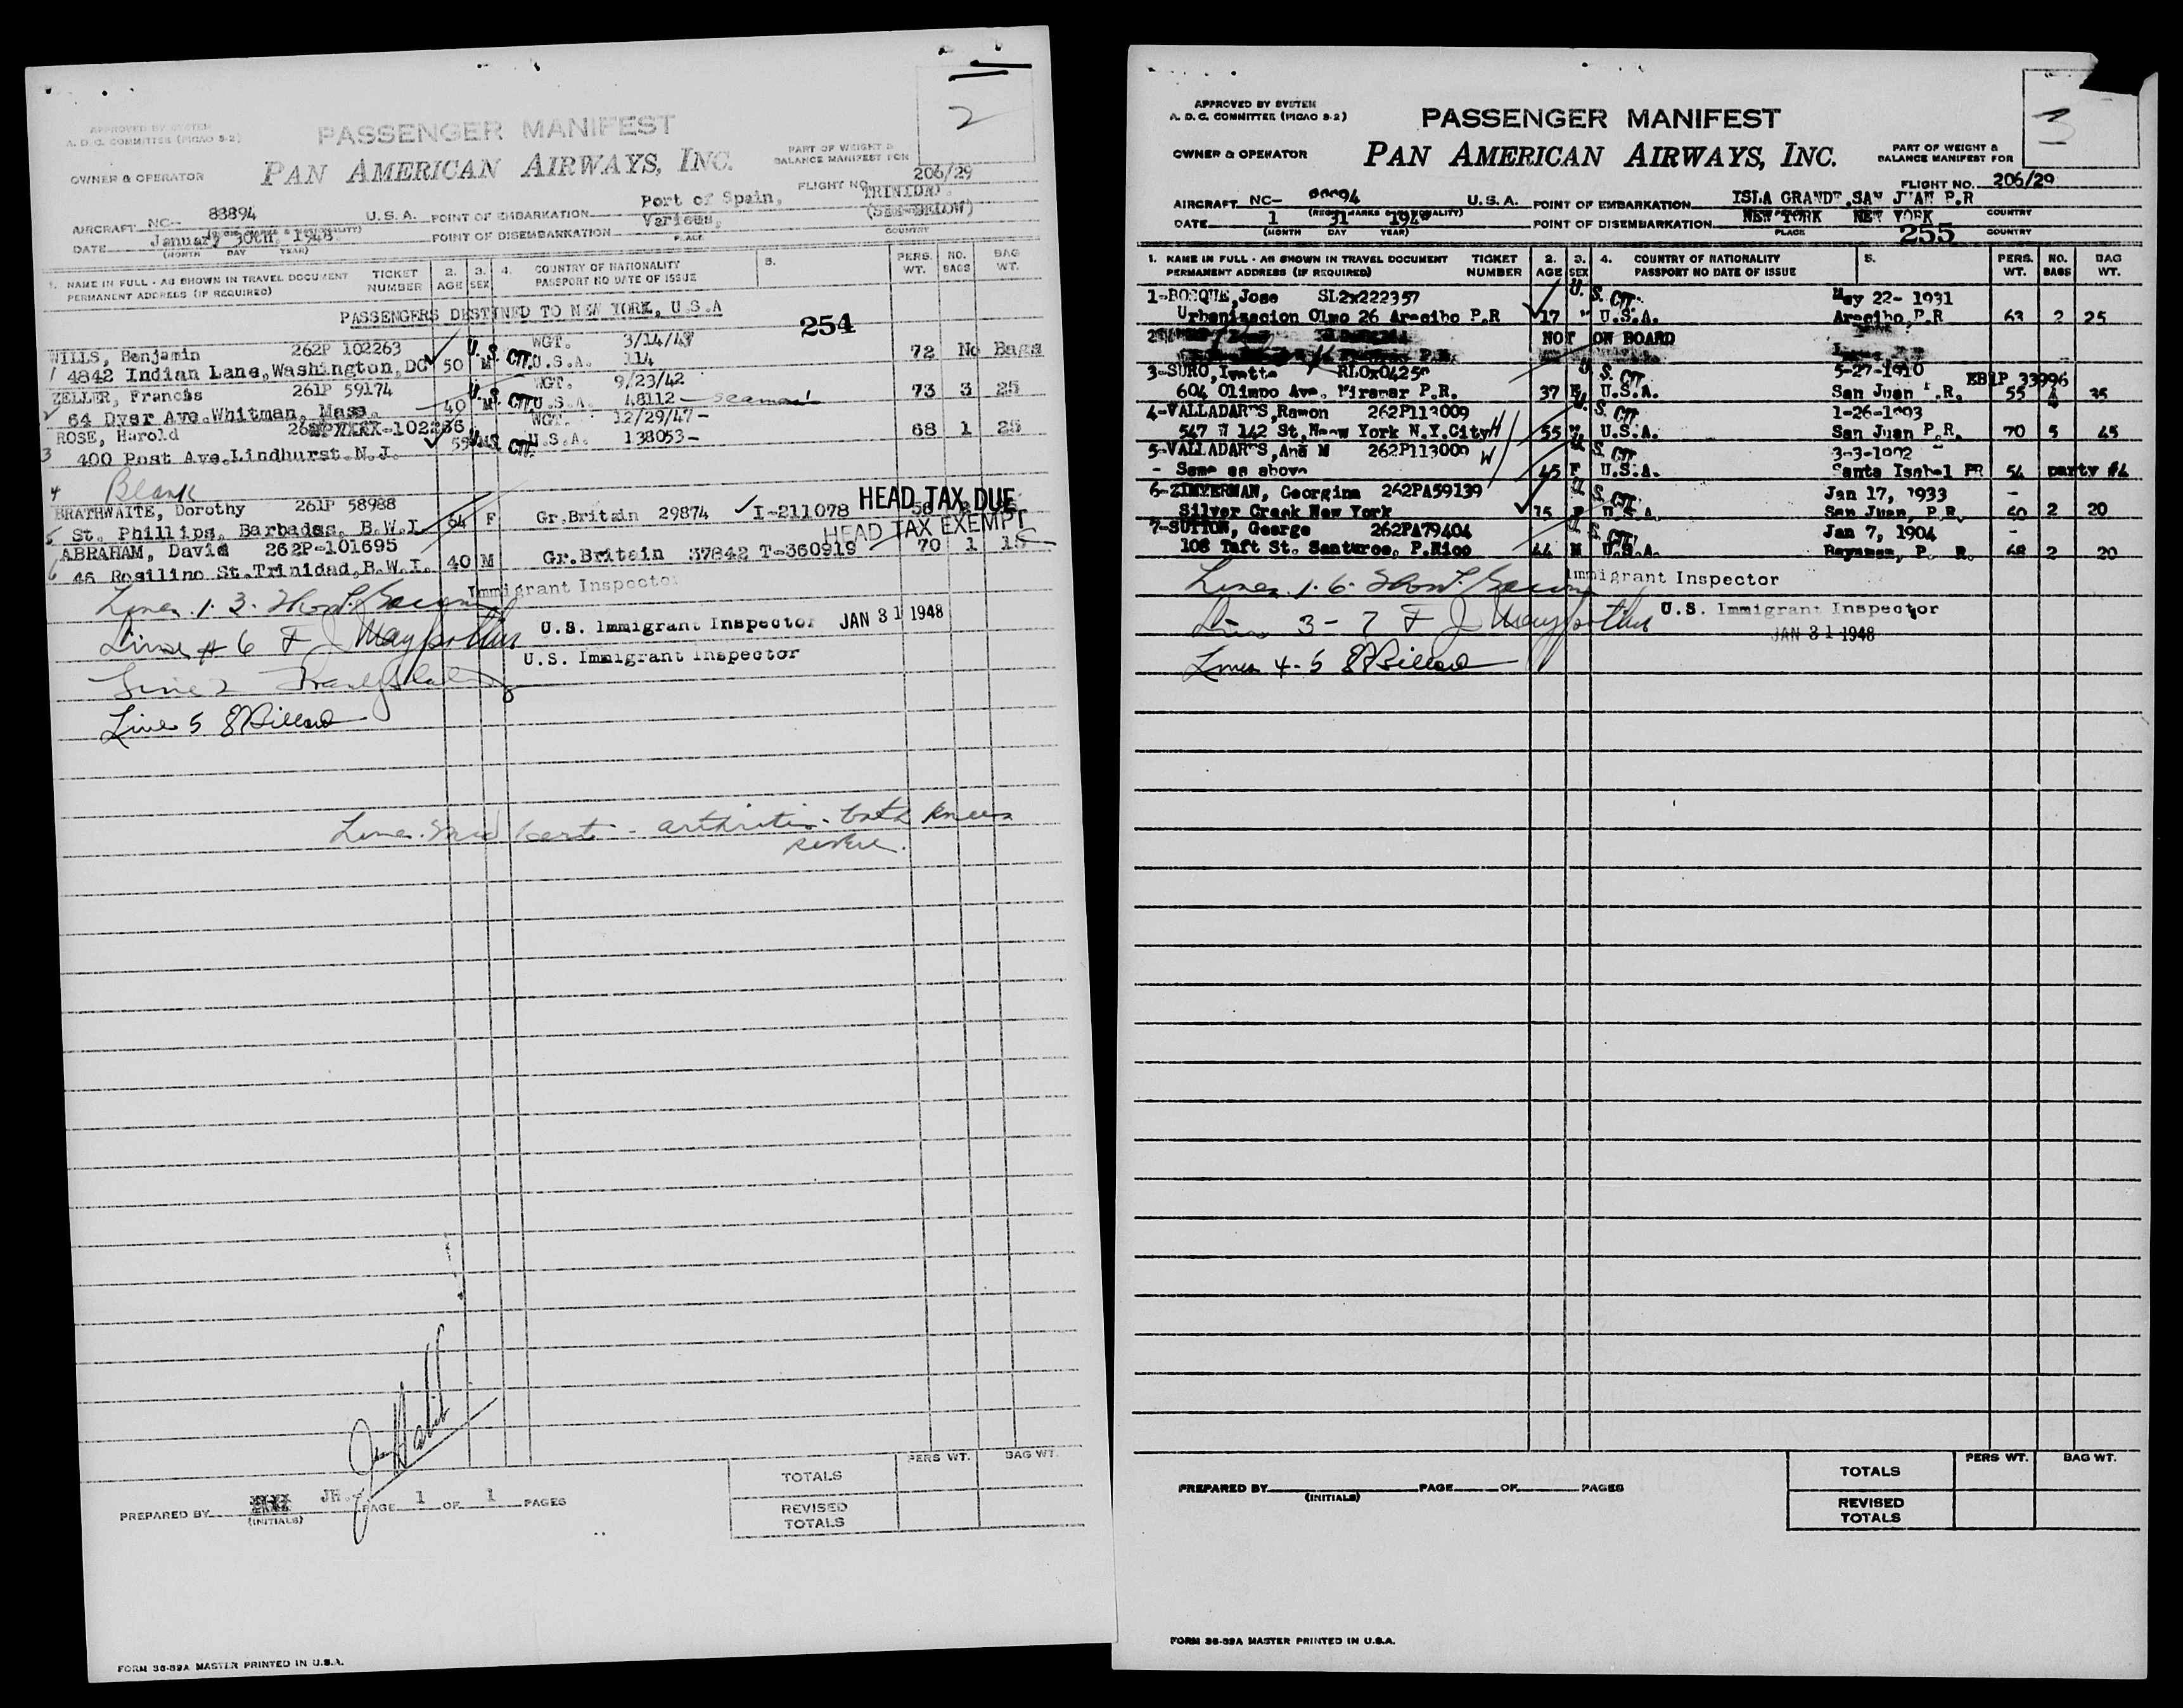 2
APPROVED BY SYSTEM
A. D. C. COMMITTEE (PICAO S-2)
PASSENGER MANIFEST
PART OF WEIGHT &
BALANCE MANIFEST FOR
OWNER & OPERATOR
PAN AMERICAN AIRWAYS, INC.
FLIGHT NO. 206/29
Port of Spain, TRINIDAD.
AIRCRAFT NC- 83894 U.S.A. POINT OF EMBARKATION
Various, (SEE BELOW)
DATE January 30th, 1948 POINT OF DISEMBARKATION
(MONTH DAY YEAR) PLACE COUNTRY
1. NAME IN FULL - AS SHOWN IN TRAVEL DOCUMENT TICKET 2. 3. 4. COUNTRY OF NATIONALITY 5. PERS. NO. BAG
PERMANENT ADDRESS (IF REQUIRED) NUMBER AGE SEX PASSPORT NO DATE OF ISSUE WT. BAGS WT.
PASSENGERS DESTINED TO NEW YORK, U.S.A
254
WILLS, Benjamin 262P 102263 WGT. 3/14/47
1 4842 Indian Lane, Washington, DC 50 M U.S. CIT. U.S.A. 114 72 No Bags
ZELLER, Francis 261P 59174 WGT. 9/23/42
64 Dyer Ave. Whitman, Mass. 40 M U.S. CIT. U.S.A. 48112 - seaman 73 3 25
ROSE, Harold 102266 WGT. 12/29/47-
3 400 Post Ave. Lindhurst. N.J. 55 M U.S. CIT. U.S.A. 138053- 68 1 25
4 Blank
BRATHWAITE, Dorothy 261P 58988 HEAD TAX DUE
5 St. Phillips, Barbados, B.W.I 64 F Gr.Britain 29874 I-211078
HEAD TAX EXEMPT
ABRAHAM, David 262P-101695
6 46 Rosilino St. Trinidad, B.W.I. 40 M Gr.Britain 37842 T-360919 70 1 15
Immigrant Inspector
Lines 1. 3.
Line # 6 F J
U.S. Immigrant Inspector JAN 31 1948
U.S. Immigrant Inspector
Line 2
Line 5
Line - arthritis - both knees
severe.
TOTALS PERS WT. BAG WT.
PREPARED BY JH. PAGE 1 OF 1 PAGES
(INITIALS)
REVISED
TOTALS
FORM 36-59A MASTER PRINTED IN U.S.A.
3
APPROVED BY SYSTEM
A. D. C. COMMITTEE (PICAO S-2)
PASSENGER MANIFEST
PART OF WEIGHT &
BALANCE MANIFEST FOR
OWNER & OPERATOR
PAN AMERICAN AIRWAYS, INC.
FLIGHT NO. 206/29
AIRCRAFT NC- U.S.A. POINT OF EMBARKATION ISLA GRANDE, SAN JUAN P.R
DATE 1 31 1948 POINT OF DISEMBARKATION NEW YORK NEW YORK COUNTRY
(MONTH DAY YEAR) PLACE 255 COUNTRY
1. NAME IN FULL - AS SHOWN IN TRAVEL DOCUMENT TICKET 2. 3. 4. COUNTRY OF NATIONALITY 5. PERS. NO. BAG
PERMANENT ADDRESS (IF REQUIRED) NUMBER AGE SEX PASSPORT NO DATE OF ISSUE WT. BAGS WT.
1-BOSQUE, Jose SL2x222357 U.S. CIT. May 22- 1931
Urbanizacion Olmo 26 Arecibo P.R 17 " U.S.A. Arecibo P.R 63 2 25
NOT ON BOARD
3-SURO, Ivette U.S. CIT. 5-27-1910 EB1P 33996
604 Olimpo Ave. Miramar P.R. 37 F U.S.A. San Juan P.R. 55 35
4-VALLADARES, Ramon 262P113009 U.S. CIT. 1-26-1893
547 W 142 St, New York N.Y.City H 55 M U.S.A. San Juan P.R. 70 5 45
5-VALLADARES, Ana M 262P113009 W U.S. CIT. 3-3-1902
- Same as above 45 F U.S.A. Santa Isabel PR 54 party #4
6-ZIMMERMAN, Georgina 262PA59139 U.S. CIT. Jan 17, 1933 -
Silver Creek New York 15 F U.S.A. San Juan, P.R. 50 2 20
7-SUTTON, George 262PA79404 U.S. CIT. Jan 7, 1904 -
108 Taft St. Santurce, P.Rico 44 M U.S.A. Bayamon, P. R. 68 2 20
Immigrant Inspector
Lines 1. 6.
U.S. Immigrant Inspector
Line 3 - 7 F J
JAN 31 1948
Lines 4-5
PERS WT. BAG WT.
TOTALS
PREPARED BY PAGE OF PAGES
(INITIALS)
REVISED
TOTALS
FORM 36-59A MASTER PRINTED IN U.S.A.